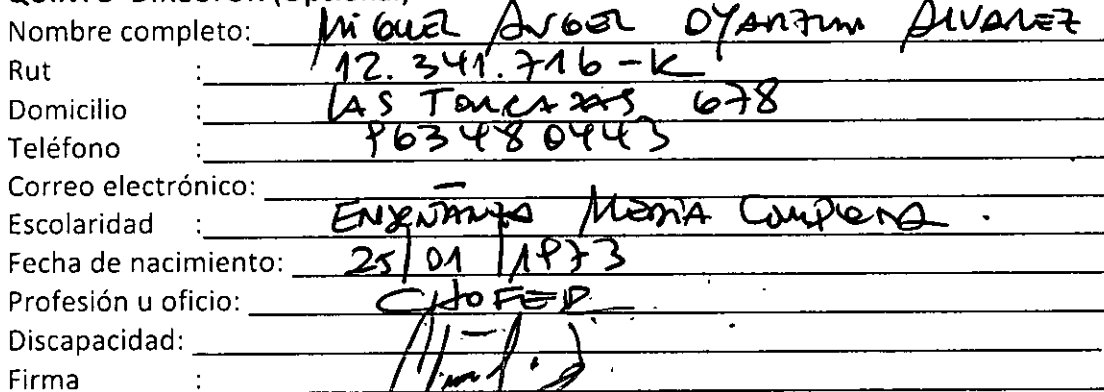 QUINTO DIRECTOR (Opcional)
Nombre completo: MIGUEL ANGEL OYARZUN ALVAREZ
Rut : 12.341.716-K
Domicilio : LAS TORCAZAS 678
Teléfono : 963480443
Correo electrónico: —
Escolaridad : ENSEÑANZA MEDIA COMPLETA.
Fecha de nacimiento: 25/01/1973
Profesión u oficio: CHOFER
Discapacidad:
Firma :